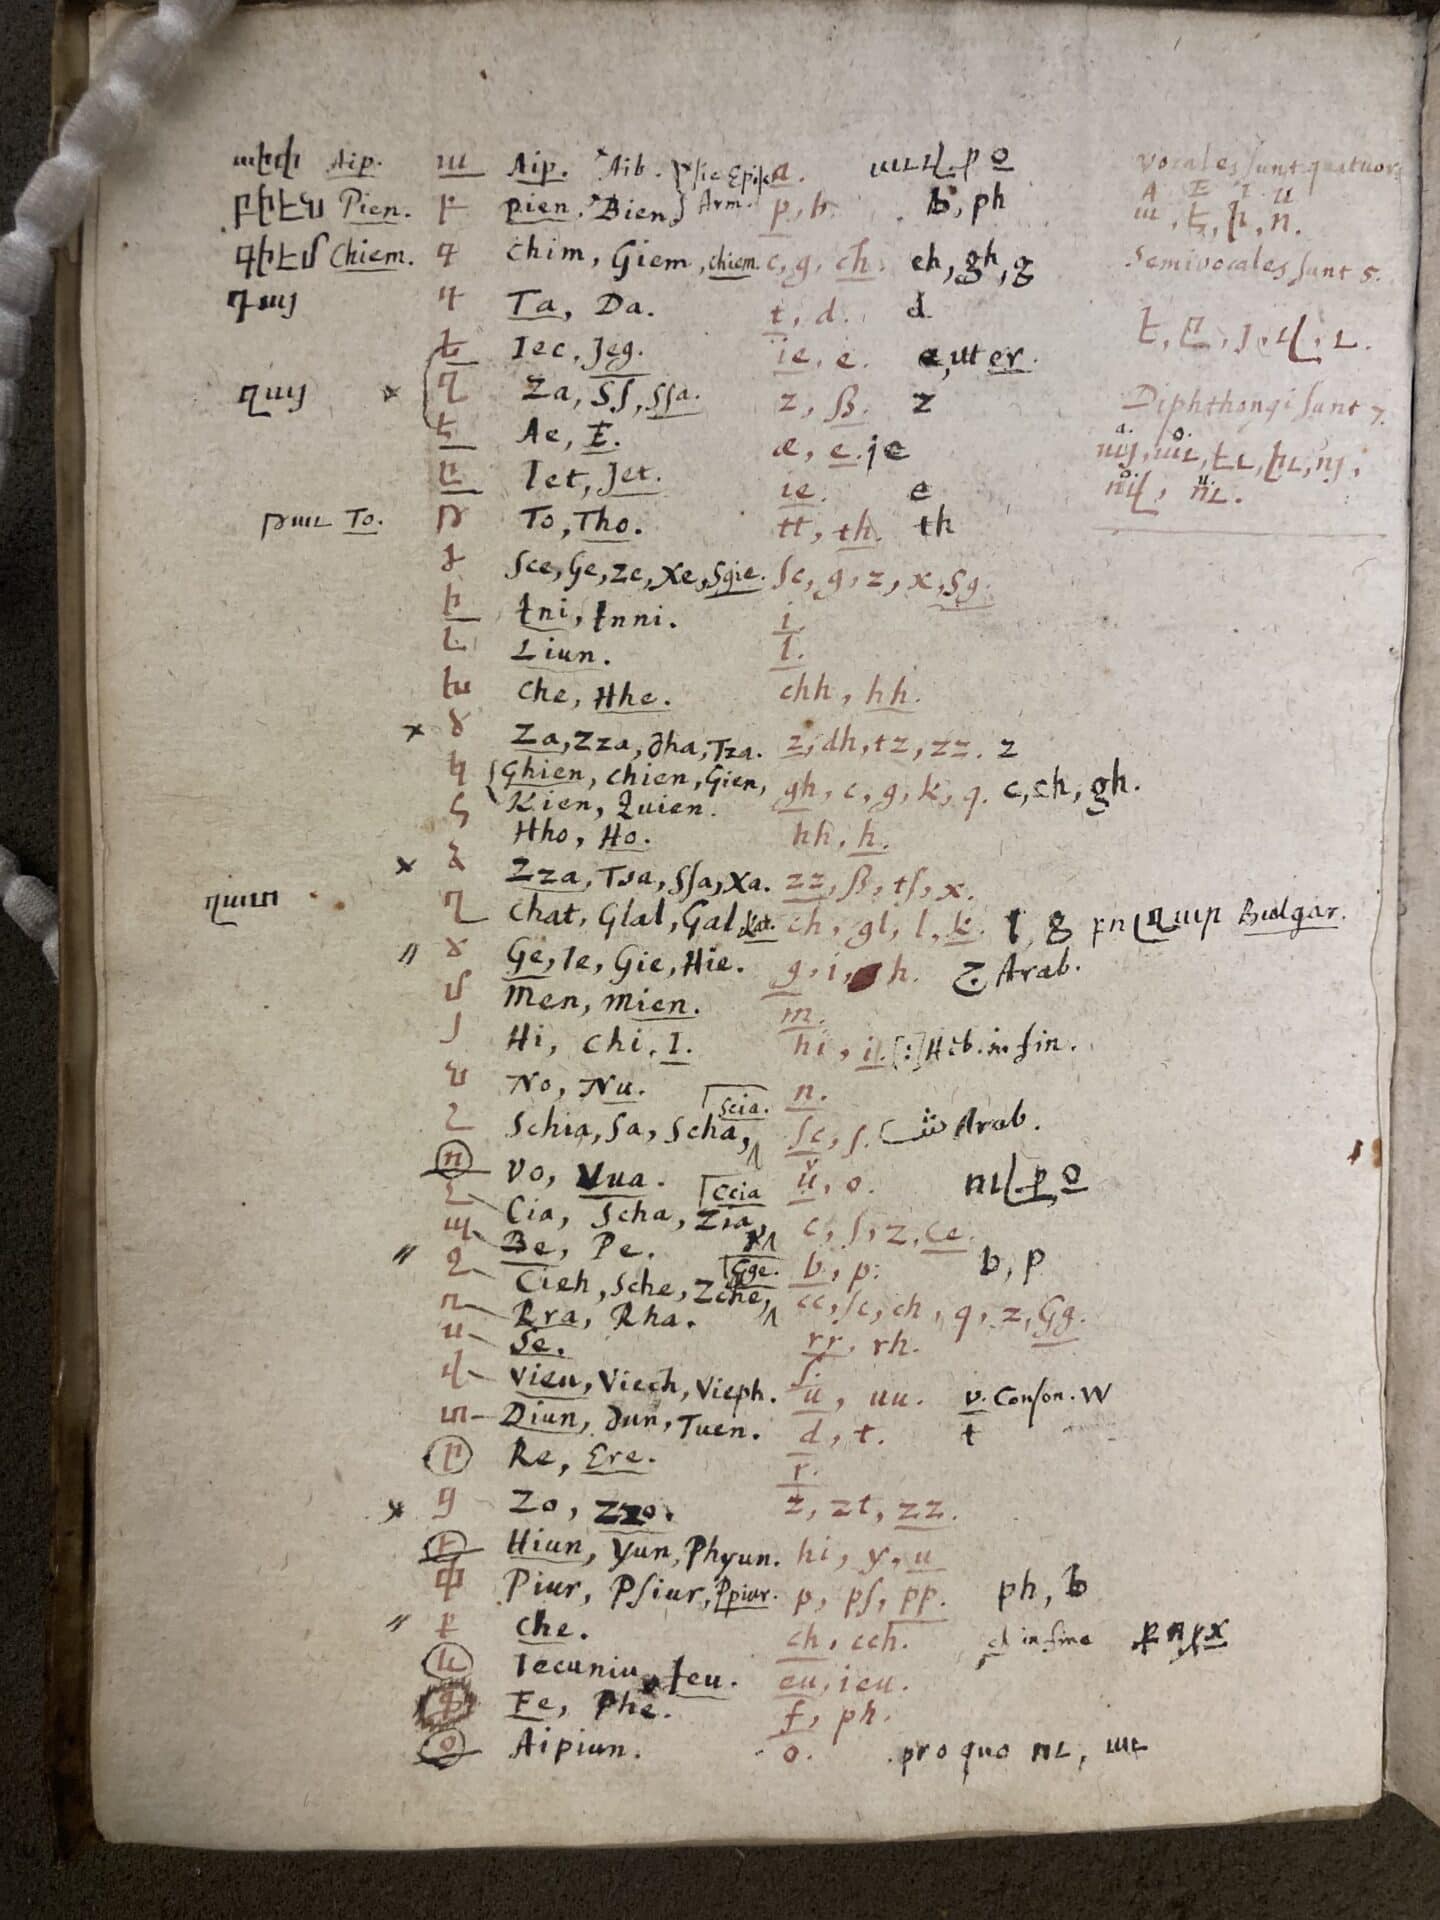 Aip. ա Aip. Aib. sic Episc. a. Vocales sunt quatuor
Pien. բ Pien. Bien. Arm. p, b. b, ph A E I u
գիէմ Chiem. գ Chim, Giem, chiem. c, g, ch. ch, gh, g ա, ե, ի, ո.
դայ դ Ta, Da. t, d. d Semivocales sunt 5.
ե Iec, Jeg. ie, e. ե, ը, յ, վ, ւ.
զայ × զ Za, Sſ, Sſa. z, ß. z Diphthongi sunt 7.
է Ae, E. æ, e. je այ, աւ, եւ, իւ, ոյ,
ը Iet, Jet. ie. e ով, ու.
թաւ To. թ To, Tho. tt, th. th
ժ Sce, Ge, Ze, Xe, Sgie. ſc, g, z, x, Sg.
ի Ini, Inni. i.
լ Liun. l.
խ Che, Hhe. chh, hh.
× ծ Za, Zza, dha, Tza. z, dh, tz, zz. z
կ Ghien, Chien, Gien, gh, c, g, k, q. c, ch, gh.
Kien, Quien.
հ Hho, Ho. hh, h.
× ձ Zza, Tsa, Sſa, Xa. zz, ß, tſ, x.
ղատ ղ Chat, Glat, Gat, Kat. ch, gl, l, k. l, g Bulgar.
〃 ճ Ge, Ie, Gie, Hie. g, i, h. ج Arab.
մ Men, Mien. m.
յ Hi, Chi, I. hi, i. [:] Heb. in fin.
ն No, Nu. n.
շ Schia, Sa, Scha, Scia. ſc, ſ. ش Arab.
ո Vo, Vua. u, o.
չ Cia, Scha, Zia, Ccia c, ſ, z, ce.
պ Be, Pe. b, p. b, p
〃 ջ Cieh, Sche, Zche, Gge. cc, ſc, ch, q, z, Gg.
ռ Rra, Rha. rr, rh.
ս Se. ſ.
վ Vieu, Viech, Vieph. u, uu. v. Conſon. W
տ Diun, dun, Tuen. d, t. t
ր Re, Ere. r.
× ց Zo, Zzo. z, zt, zz.
ւ Hiun, Yun, Phyun. hi, y, u
փ Piur, Pſiur, Ppiur. p, pſ, pp. ph, b
〃 ք Che. ch, cch. ch in fine
և Iecuniu, Ieu. eu, ieu.
ֆ Fe, Phe. f, ph.
օ Aipiun. o. pro quo ու, աւ